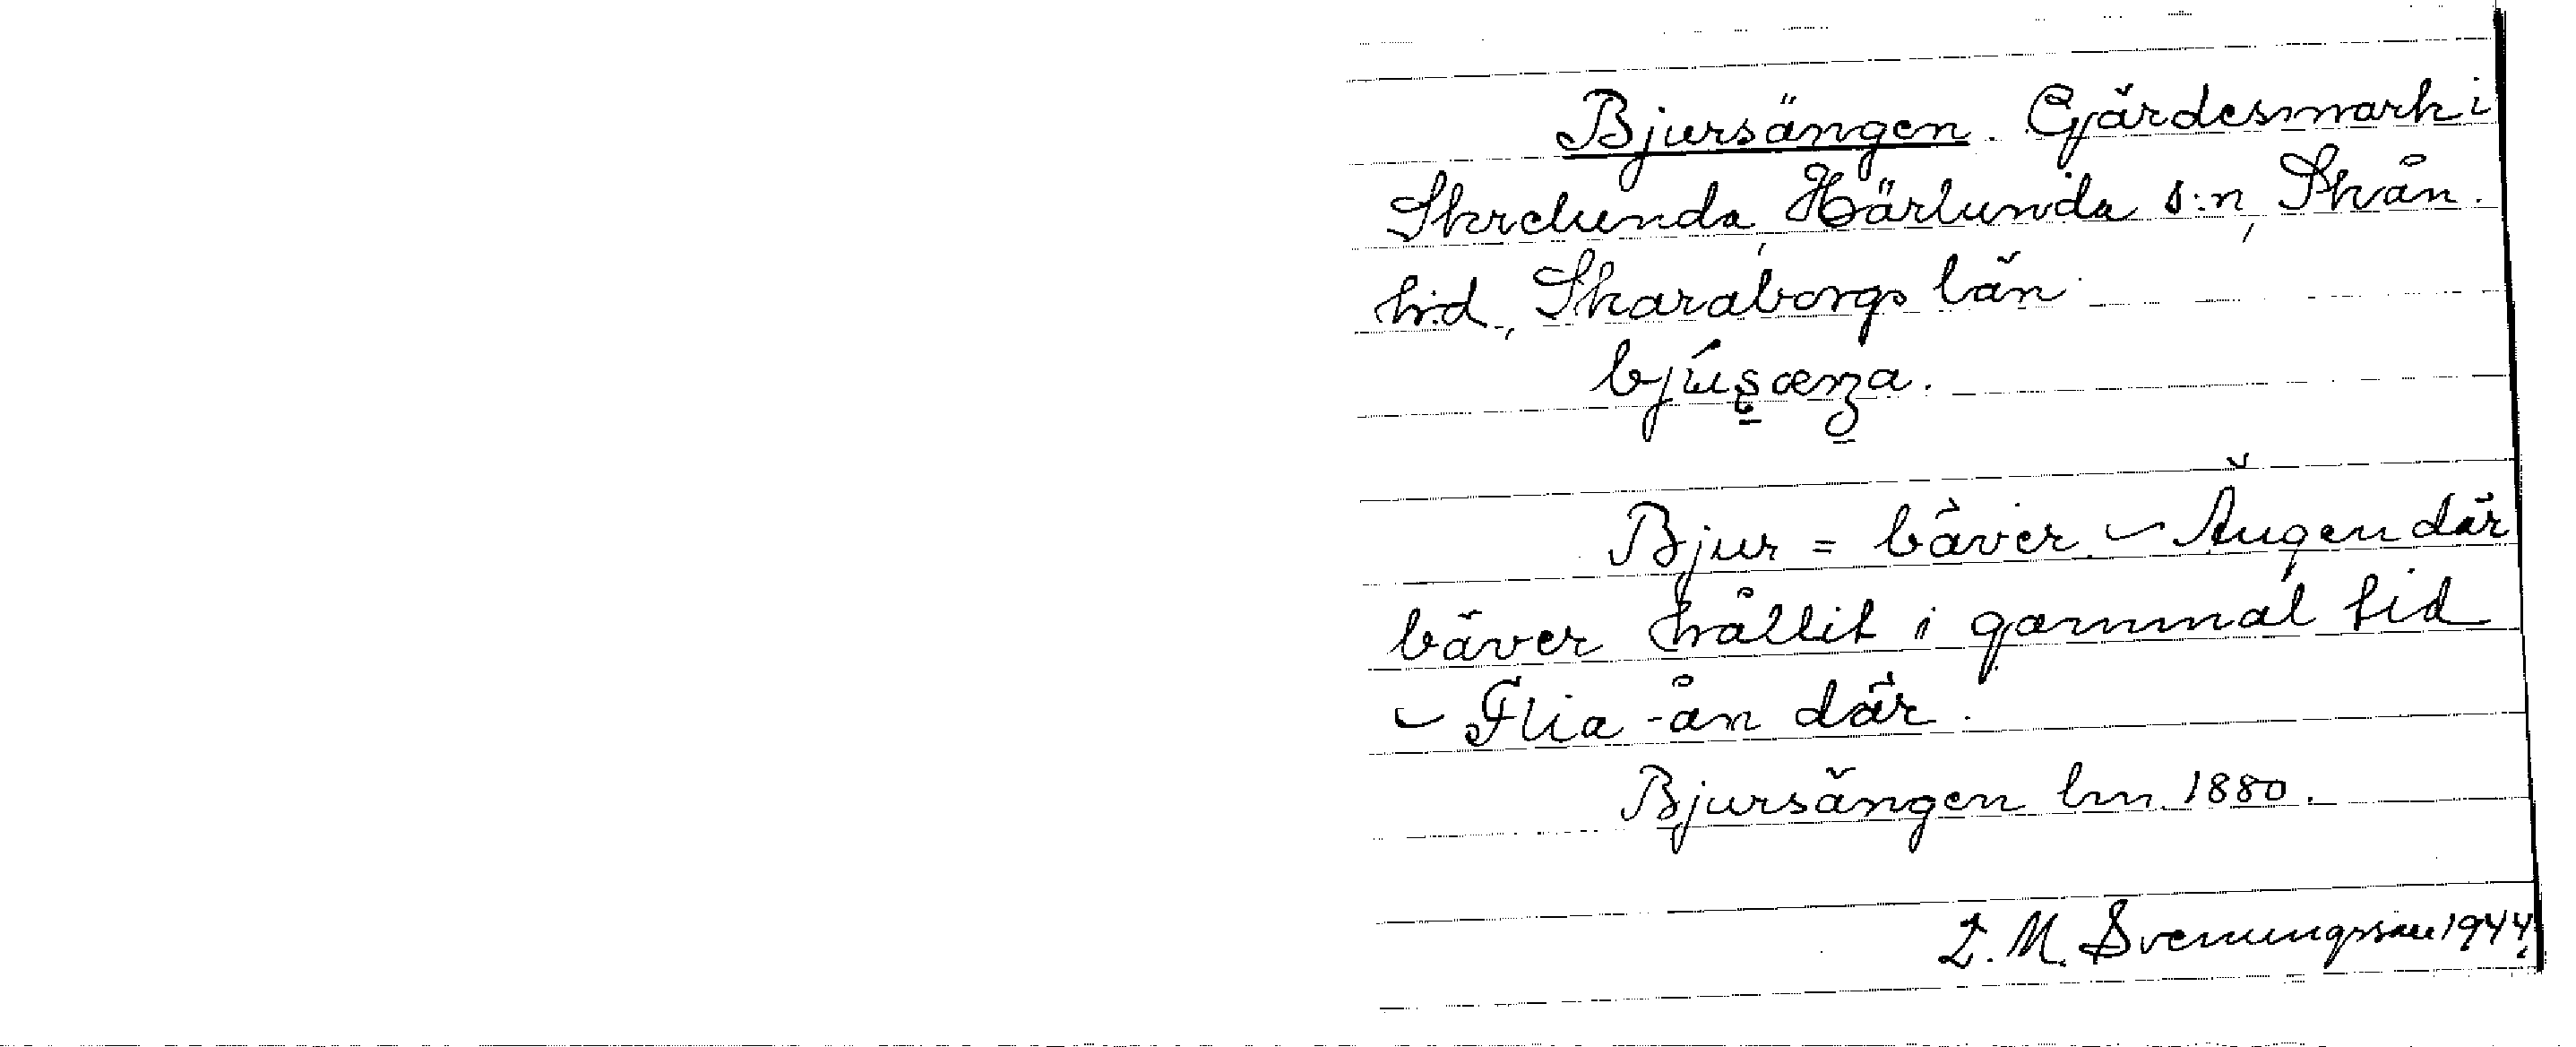 Bjursängen. Gärdesmark i
Skrelunda, Härlunda s:n, Skån.
h:d., Skaraborgs län.
bjúsæŋa.
Bjur = bäver. – Ängen där
bäver hållit i gammal tid
– Flia-ån där.
Bjursängen lm 1880.
L. M. Svenungsson 1944.